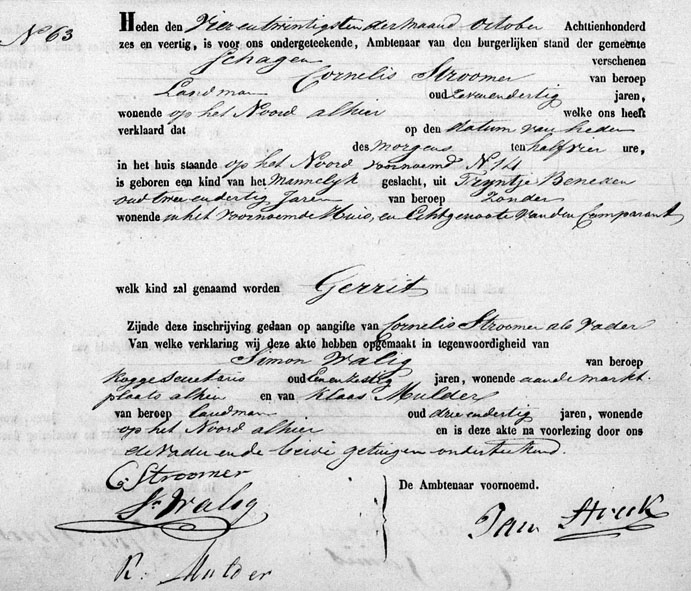 No 63
Heden den Vier en twintigsten der maand October Achttienhonderd
zes en veertig, is voor ons ondergeteekende, Ambtenaar van den burgerlijken stand der gemeente
Schagen verschenen
Cornelis Stroomer van beroep
Landman oud zevenendertig jaren,
wonende op het Noord alhier welke ons heeft
verklaard dat op den datum van heden
des morgens ten half vier ure,
in het huis staande op het Noord voornoemd N 14
is geboren een kind van het Mannelyk geslacht, uit Tryntje Beneken
oud twee endertig Jaren van beroep Zonder
wonende in het voornoemde Huis, en Echtgenoote van den Comparant
welk kind zal genaamd worden Gerrit
Zijnde deze inschrijving gedaan op aangifte van Cornelis Stroomer als vader
Van welke verklaring wij deze akte hebben opgemaakt in tegenwoordigheid van
Simon Walig van beroep
Kogge Secretaris oud Een en zestig jaren, wonende aan de markt-
plaats alhier en van Klaas Mulder
van beroep landman oud drie endertig jaren, wonende
op het Noord alhier en is deze akte na voorlezing door ons
de vader en de beide getuigen onderteekend.
C Stroomer
S Walig
K. Mulder
De Ambtenaar voornoemd.
Jan